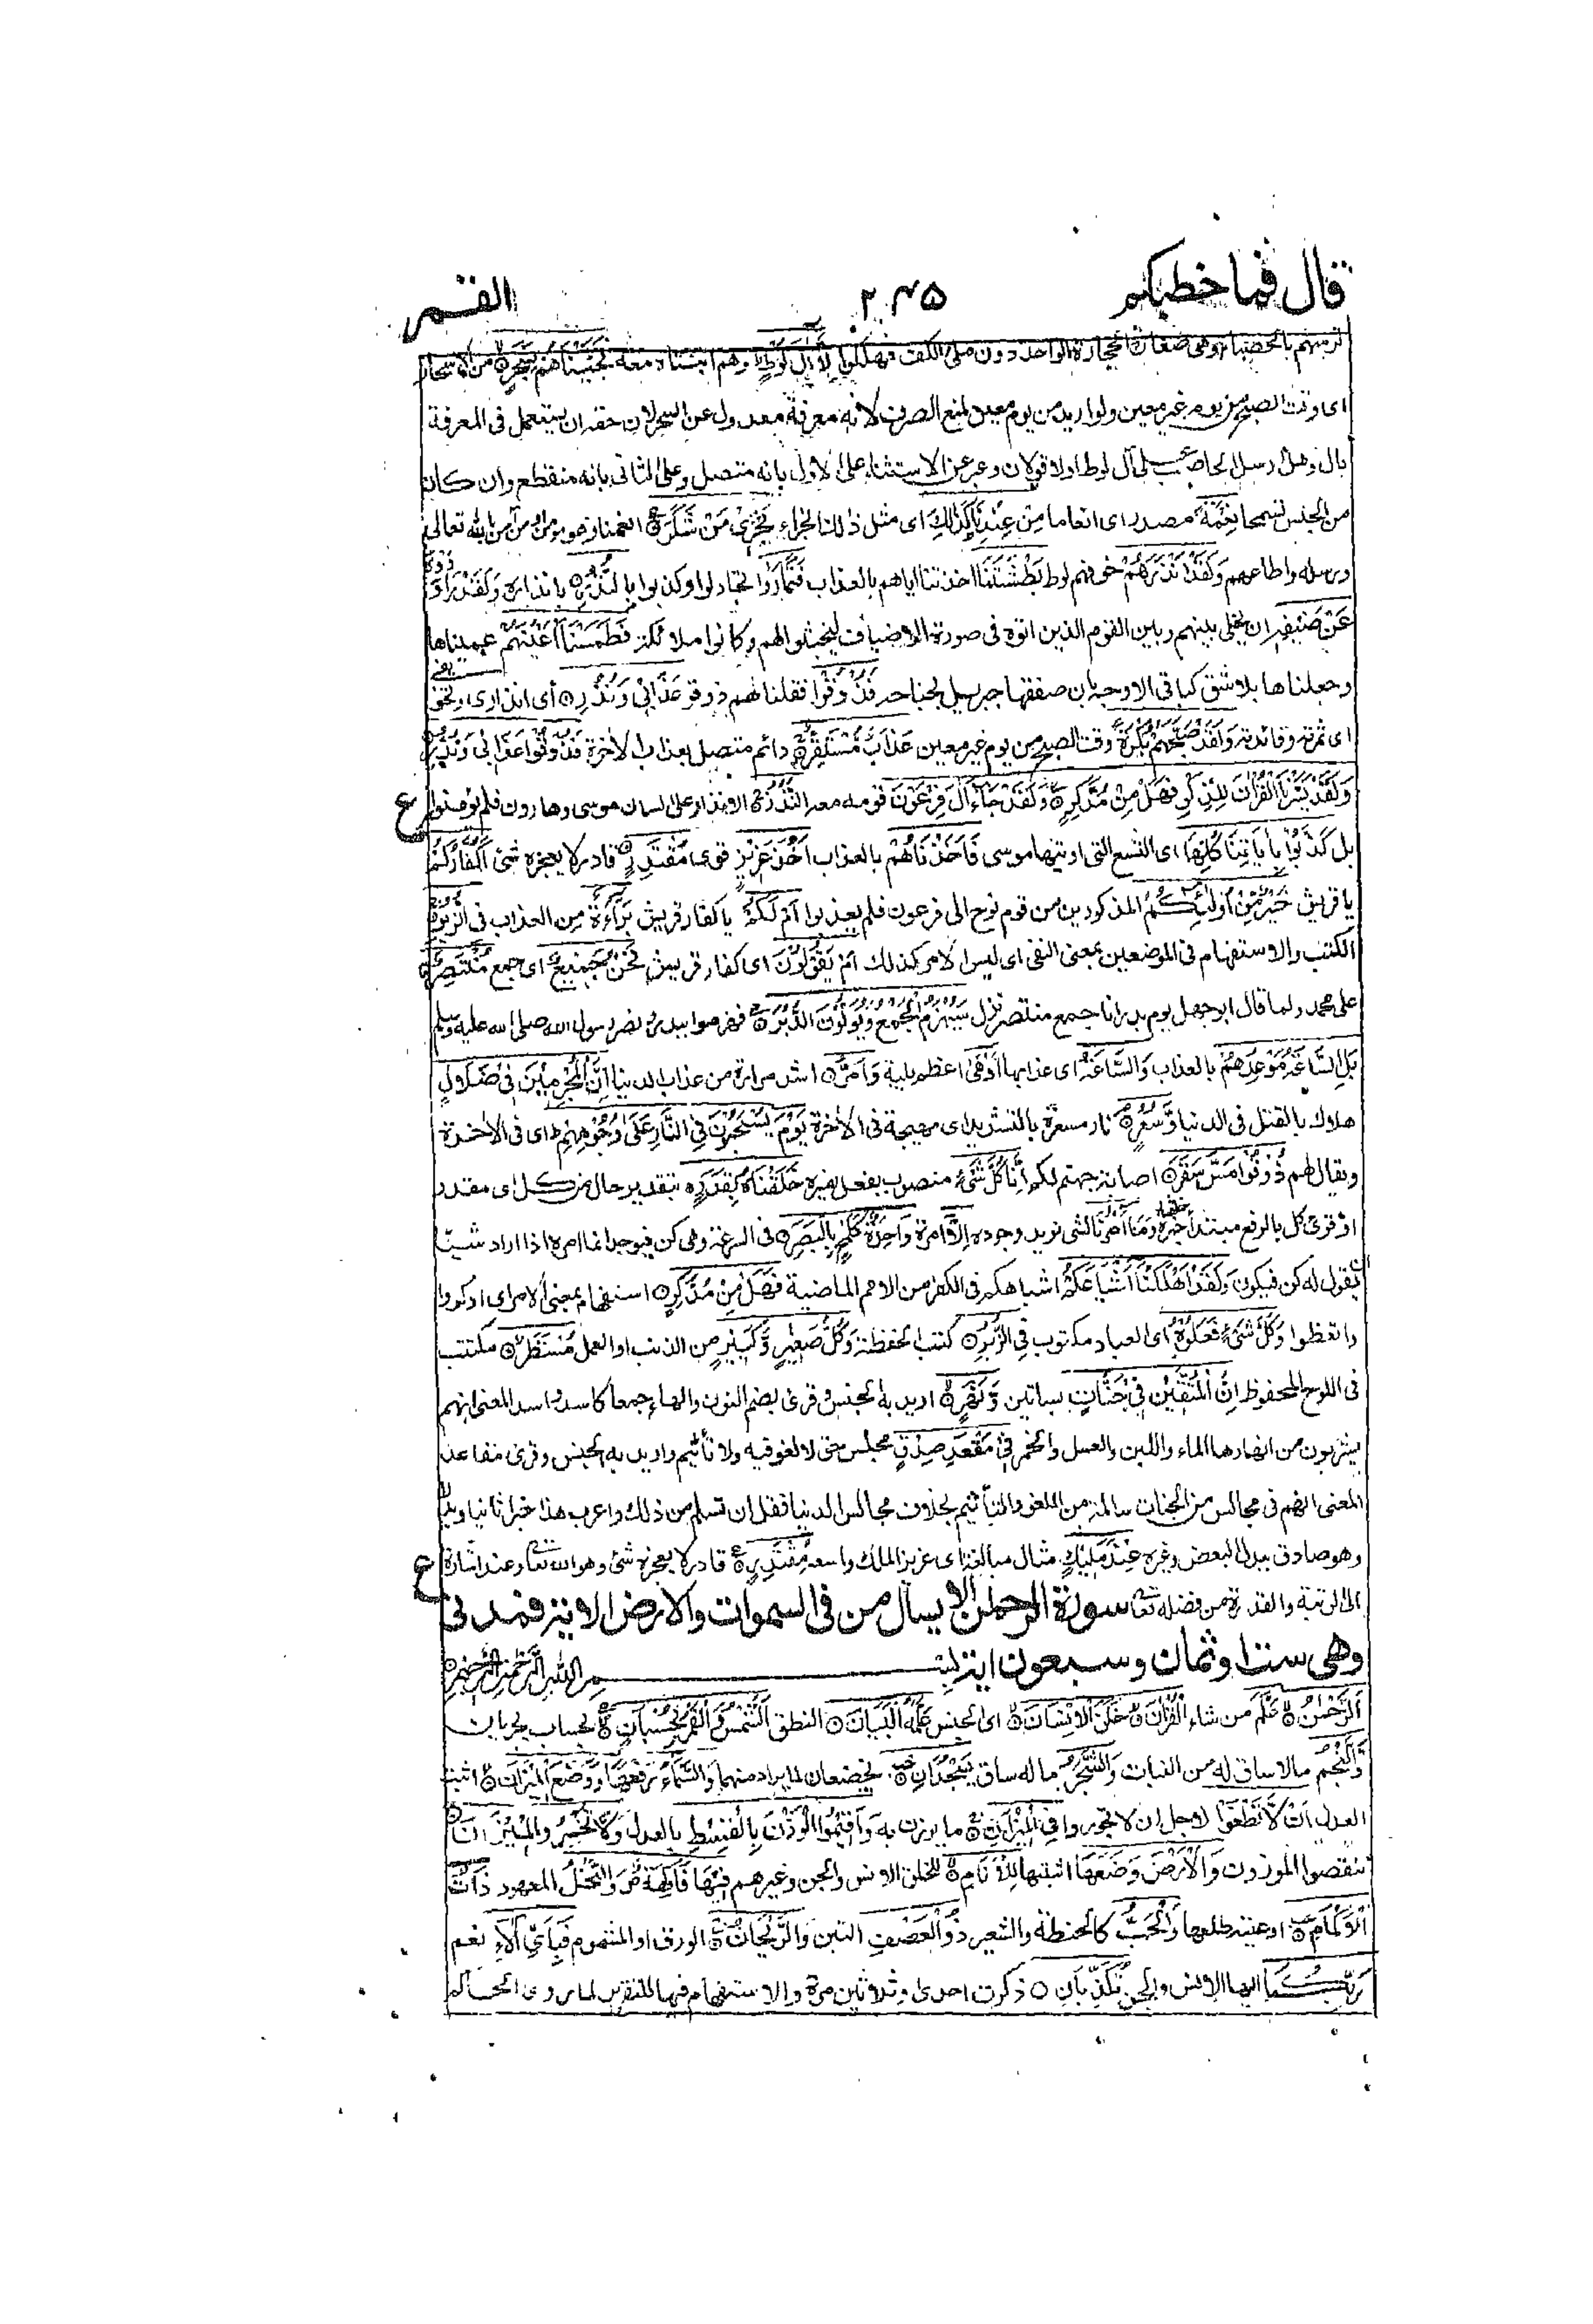 قال فما خطبكم ٢٤٥ القمر
ترميهم بالحصباء وهي صغار الحجارة الواحد دون ملء الكف فهلكوا إِلَّا آلَ لُوطٍ وهم ابنتاه معه نَجَّيْنَاهُمْ بِسَحَرٍ من الاسحار
اى وقت الصبح من يوم غير معين ولو اريد من يوم معين لمنع الصرف لانه معرفة معدول عن السحر لان حقه ان يستعمل فى المعرفة
بال وهل ارسل الحاصب على آل لوط اولا قولان وعبر عن الاستثناء على الاول بانه متصل وعلى الثانى بانه منقطع وان كان
من الجنس تسمحا نِعْمَةً مصدر اى انعاما مِنْ عِنْدِنَا كَذَلِكَ اى مثل ذلك الجزاء نَجْزِيْ مَنْ شَكَرَ انعمنا وهو مومن او من آمن بالله تعالى
ورسله واطاعهم وَلَقَدْ اَنْذَرَهُمْ خوفهم لوط بَطْشَتَنَا اخذتنا اياهم بالعذاب فَتَمَارَوْا تجادلوا وكذبوا بِالنُّذُرِ بانذاره وَلَقَدْ رَاوَدُوْهُ
عَنْ ضَيْفِهِ ان يخلى بينهم وبين القوم الذين اتوه فى صورة الاضياف ليخبثوا بهم وكانوا ملائكة فَطَمَسْنَا اَعْيُنَهُمْ عميناها
وجعلناها بلا شق كباقى الاوجه بان صفقها جبريل بجناحه فَذُوْقُوْا فقلنا لهم ذوقوا عَذَابِيْ وَنُذُرِ اى انذارى وتخويفى
اى ثمرته وفائدته وَلَقَدْ صَبَّحَهُمْ بُكْرَةً وقت الصبح من يوم غير معين عَذَابٌ مُّسْتَقِرٌّ دائم متصل بعذاب الاخرة فَذُوْقُوْا عَذَابِيْ وَنُذُرِ
وَلَقَدْ يَسَّرْنَا الْقُرْآنَ لِلذِّكْرِ فَهَلْ مِنْ مُّدَّكِرٍ وَلَقَدْ جَاءَ آلَ فِرْعَوْنَ قومه معه النُّذُرُ الانذار على لسان موسى وهارون فلم يؤمنوا ع
بل كَذَّبُوْا بِآيَاتِنَا كُلِّهَا اى التسع التى اوتيها موسى فَاَخَذْنَاهُمْ بالعذاب اَخْذَ عَزِيْزٍ قوى مُّقْتَدِرٍ قادر لا يعجزه شئ اَكُفَّارُكُمْ
يا قريش خَيْرٌ مِّنْ اُولٰئِكُمْ المذكورين من قوم نوح الى فرعون فلم يعذبوا اَمْ لَكُمْ يا كفار قريش بَرَاءَةٌ من العذاب فى الزُّبُرِ
الكتب والاستفهام فى الموضعين بمعنى النفى اى ليس الامر كذلك اَمْ يَقُوْلُوْنَ اى كفار قريش نَحْنُ جَمِيْعٌ اى جمع مُّنْتَصِرٌ
على محمد ولما قال ابو جهل يوم بدر انا جمع منتصر نزل سَيُهْزَمُ الْجَمْعُ وَيُوَلُّوْنَ الدُّبُرَ فهزموا ببدر ونصر رسول الله صلى الله عليه وسلم
بَلِ السَّاعَةُ مَوْعِدُهُمْ بالعذاب وَالسَّاعَةُ اى عذابها اَدْهٰى اعظم بلية وَاَمَرُّ اشد مرارة من عذاب الدنيا اِنَّ الْمُجْرِمِيْنَ فِيْ ضَلٰلٍ
هلاك بالقتل فى الدنيا وَّسُعُرٍ نار مسعرة بالتشديد اى مهيجة فى الاخرة يَوْمَ يُسْحَبُوْنَ فِي النَّارِ عَلٰى وُجُوْهِهِمْ اى فى الاخرة
ويقال لهم ذُوْقُوْا مَسَّ سَقَرَ اصابة جهنم لكم اِنَّا كُلَّ شَيْءٍ منصوب بفعل يفسره خَلَقْنَاهُ بِقَدَرٍ بتقدير حال من كل اى مقدر
او قرئ كل بالرفع مبتدأ خبره خلقناه وَمَا اَمْرُنَا لشى نريد وجوده اِلَّا امرة وَاحِدَةٌ كَلَمْحٍ بِالْبَصَرِ فى السرعة وهى كن فيوجد انما امره اذا اراد شيئا
ان يقول له كن فيكون وَلَقَدْ اَهْلَكْنَا اَشْيَاعَكُمْ اشباهكم فى الكفر من الامم الماضية فَهَلْ مِنْ مُّدَّكِرٍ استفهام بمعنى الامر اى اذكروا
واتعظوا وَكُلُّ شَيْءٍ فَعَلُوْهُ اى العباد مكتوب فِي الزُّبُرِ كتب الحفظة وَكُلُّ صَغِيْرٍ وَّكَبِيْرٍ من الذنب او العمل مُسْتَطَرٌ مكتتب
فى اللوح المحفوظ اِنَّ الْمُتَّقِيْنَ فِيْ جَنَّاتٍ بساتين وَّنَهَرٍ اريد به الجنس وقرئ بضم النون والهاء جمعا كاسد واسد المعنى انهم
يشربون من انهارها الماء واللبن والعسل والخمر فِيْ مَقْعَدِ صِدْقٍ مجلس حق لا لغو فيه ولا تأثيم واريد به الجنس وقرئ مقاعد
المعنى انهم فى مجالس من الجنات سالمة من اللغو والتأثيم بخلاف مجالس الدنيا فقل ان تسلم من ذلك واعرب هذا خبرا ثانيا وبدلا
وهو صادق ببدل البعض وغيره عِنْدَ مَلِيْكٍ مثال مبالغة اى عزيز الملك واسعه مُّقْتَدِرٍ قادر لا يعجزه شئ وهو الله تعالى وعند اشارة ع
الى الرتبة والقدرة من فضله تعالى سورة الرحمن الا يسأل من فى السموات والارض الاية فمدنى
وهى ست او ثمان وسبعون اية بِسْمِ اللهِ الرَّحْمٰنِ الرَّحِيْمِ
اَلرَّحْمٰنُ عَلَّمَ من شاء الْقُرْاٰنَ خَلَقَ الْاِنْسَانَ اى الجنس عَلَّمَهُ الْبَيَانَ النطق اَلشَّمْسُ وَالْقَمَرُ بِحُسْبَانٍ بحساب يجريان
وَّالنَّجْمُ مالا ساق له من النبات وَالشَّجَرُ ما له ساق يَسْجُدَانِ يخضعان لما يراد منهما وَالسَّمَاءَ رَفَعَهَا وَوَضَعَ الْمِيْزَانَ اثبت
العدل اَنْ لَّا تَطْغَوْا لاجل ان لا تجوروا فِي الْمِيْزَانِ ما يوزن به وَاَقِيْمُوا الْوَزْنَ بِالْقِسْطِ بالعدل وَلَا تُخْسِرُوا الْمِيْزَانَ
تنقصوا الموزون وَالْاَرْضَ وَضَعَهَا اثبتها لِلْاَنَامِ للخلق الانس والجن وغيرهم فِيْهَا فَاكِهَةٌ وَالنَّخْلُ المعهود ذَاتُ
الْاَكْمَامِ اوعية طلعها وَالْحَبُّ كالحنطة والشعير ذُو الْعَصْفِ التبن وَالرَّيْحَانُ الورق او المشموم فَبِاَيِّ اٰلَاءِ نعم
رَبِّكُمَا ايها الانس والجن تُكَذِّبَانِ ذكرت احدى وثلاثين مرة والاستفهام فيها للتقرير لما روى الحاكم